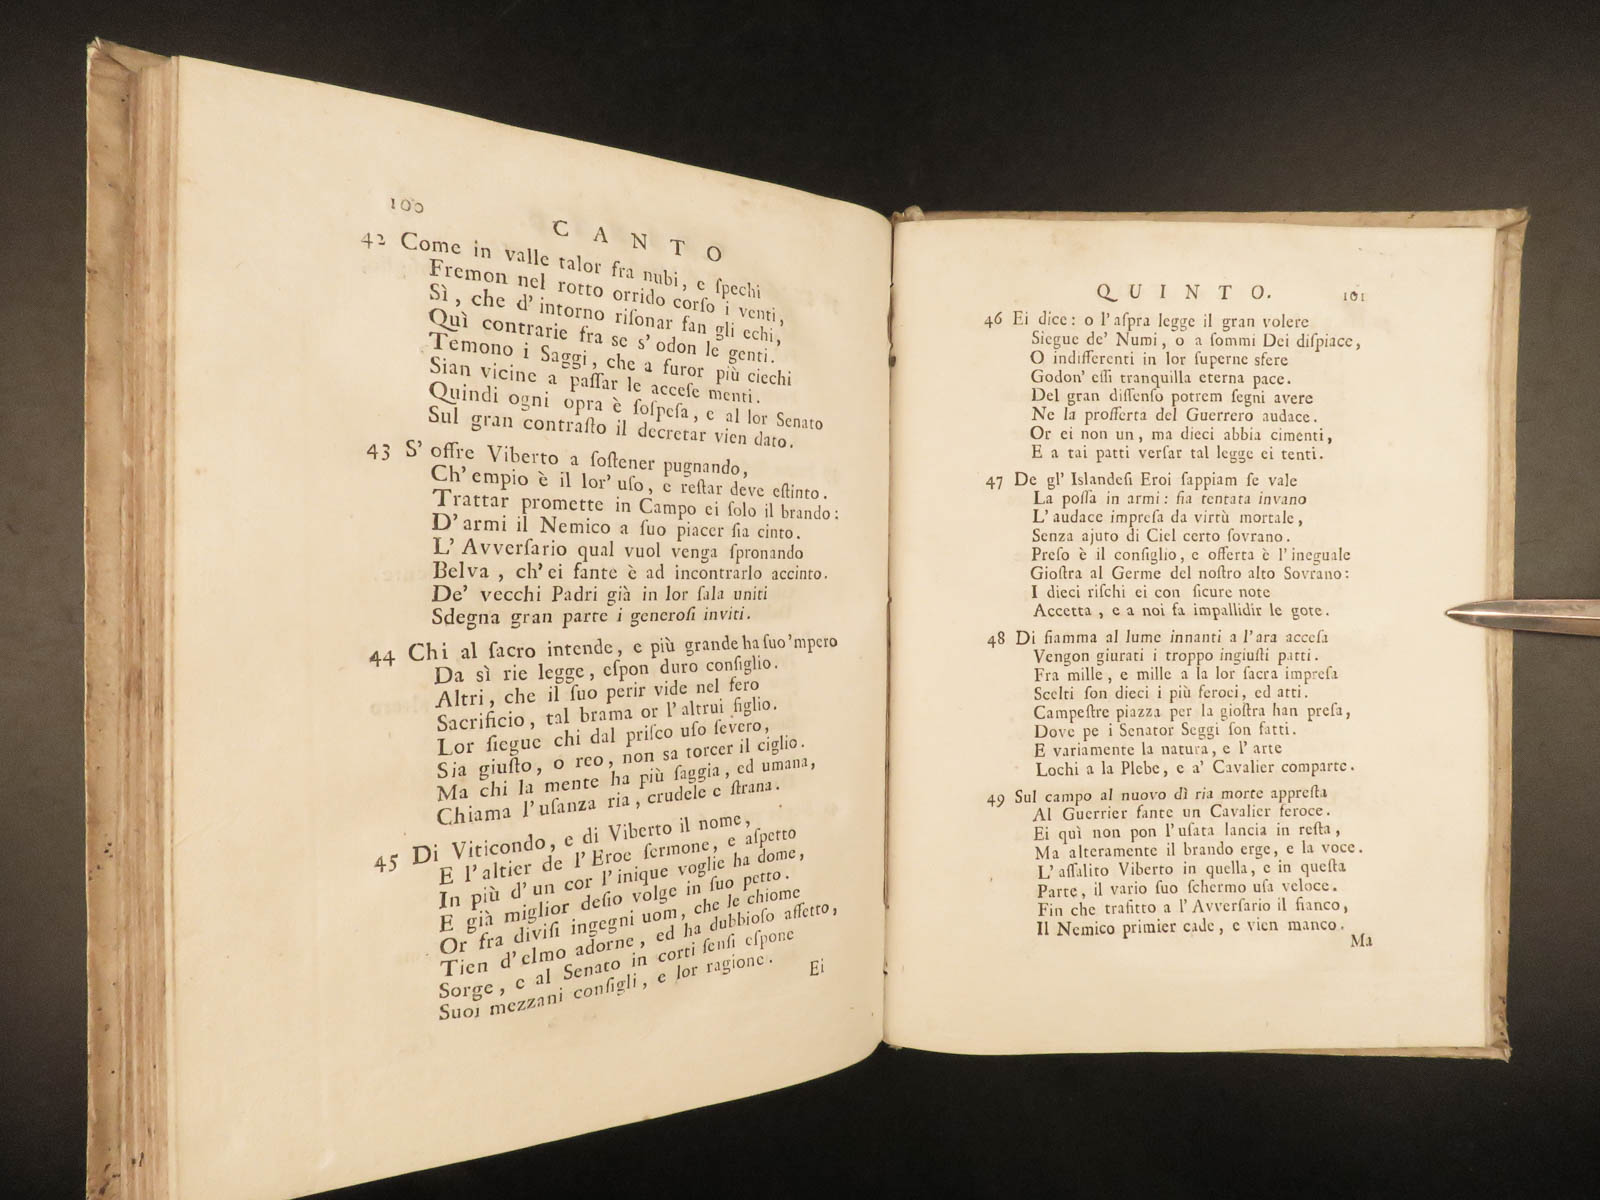 100
CANTO
42 Come in valle talor fra nubi, e ſpechi
Fremon nel rotto orrido corſo i venti,
Sì, che d' intorno riſonar fan gli echi,
Quì contrarie fra se s' odon le genti.
Temono i Saggi, che a furor più ciechi
Sian vicine a paſſar le acceſe menti.
Quindi ogni opra è ſoſpeſa, e al lor Senato
Sul gran contraſto il decretar vien dato.
43 S' offre Viberto a ſoſtener pugnando,
Ch' empio è il lor' uſo, e reſtar deve eſtinto.
Trattar promette in Campo ei ſolo il brando:
D' armi il Nemico a ſuo piacer ſia cinto.
L' Avverſario qual vuol venga ſpronando
Belva, ch' ei fante è ad incontrarlo accinto.
De' vecchi Padri già in lor ſala uniti
Sdegna gran parte i generoſi inviti.
44 Chi al ſacro intende, e più grande ha ſuo 'mpero
Da sì rie legge, eſpon duro conſiglio.
Altri, che il ſuo perir vide nel fero
Sacrificio, tal brama or l' altrui figlio.
Lor ſiegue chi dal priſco uſo ſevero,
Sia giuſto, o reo, non sa torcer il ciglio.
Ma chi la mente ha più ſaggia, ed umana,
Chiama l' uſanza ria, crudele e ſtrana.
45 Di Viticondo, e di Viberto il nome,
E l' altier de l' Eroe ſermone, e aſpetto
In più d' un cor l' inique voglie ha dome,
E già miglior deſio volge in ſuo petto.
Or fra diviſi ingegni uom, che le chiome
Tien d' elmo adorne, ed ha dubbioſo aſſetto,
Sorge, e al Senato in corti ſenſi eſpone
Suoi mezzani conſigli, e lor ragione.
Ei
QUINTO.
101
46 Ei dice: o l' aſpra legge il gran volere
Siegue de' Numi, o a ſommi Dei diſpiace,
O indifferenti in lor ſuperne sfere
Godon' eſſi tranquilla eterna pace.
Del gran diſſenſo potrem ſegni avere
Ne la profferta del Guerrero audace.
Or ei non un, ma dieci abbia cimenti,
E a tai patti verſar tal legge ei tenti.
47 De gl' Islandeſi Eroi ſappiam ſe vale
La poſſa in armi: ſia tentata invano
L' audace impreſa da virtù mortale,
Senza ajuto di Ciel certo ſovrano.
Preſo è il conſiglio, e offerta è l' ineguale
Gioſtra al Germe del noſtro alto Sovrano:
I dieci riſchi ei con ſicure note
Accetta, e a noi fa impallidir le gote.
48 Di fiamma al lume innanti a l' ara acceſa
Vengon giurati i troppo ingiuſti patti.
Fra mille, e mille a la lor ſacra impreſa
Scelti ſon dieci i più feroci, ed atti.
Campeſtre piazza per la gioſtra han preſa,
Dove pe i Senator Seggi ſon fatti.
E variamente la natura, e l' arte
Lochi a la Plebe, e a' Cavalier comparte.
49 Sul campo al nuovo dì ria morte appreſta
Al Guerrier fante un Cavalier feroce.
Ei quì non pon l' uſata lancia in reſta,
Ma alteramente il brando erge, e la voce.
L' aſſalito Viberto in quella, e in queſta
Parte, il vario ſuo ſchermo uſa veloce.
Fin che trafitto a l' Avverſario il fianco,
Il Nemico primier cade, e vien manco.
Ma